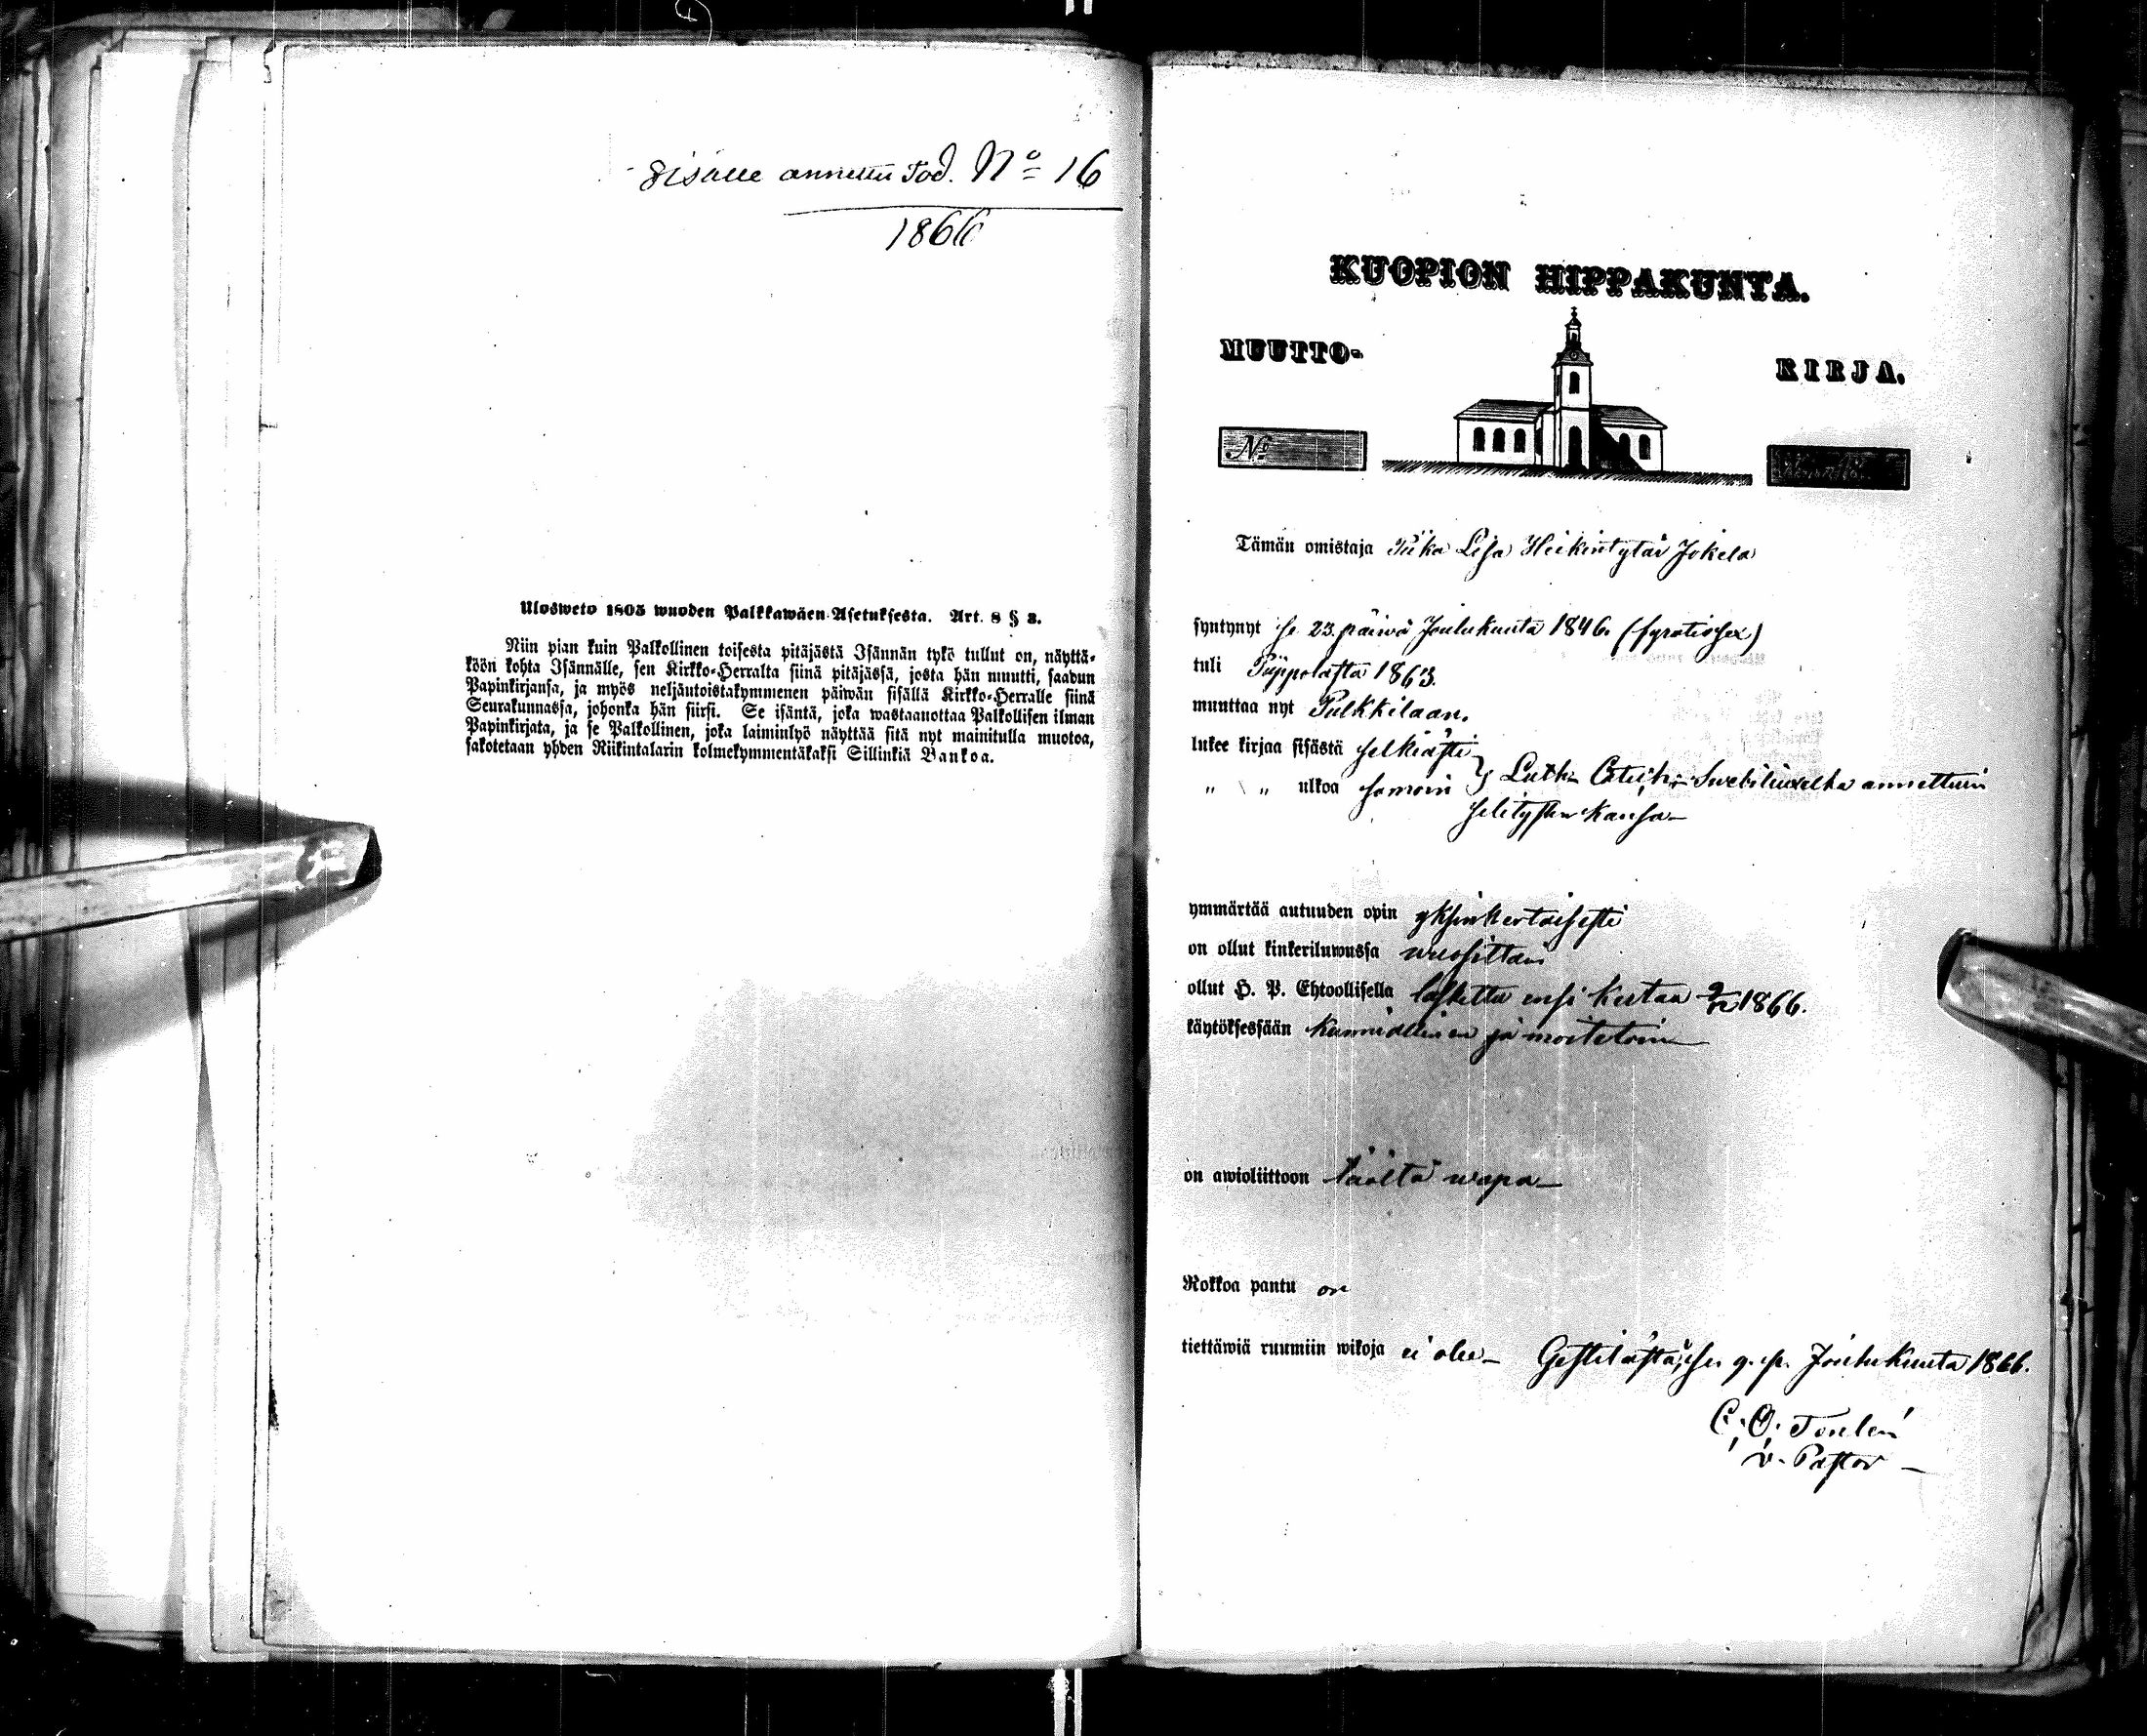 Sisälle annettu Tod. No 16
1866
Ulosweto 1805 wuoden Palkkawäen-Asetuksesta. Art. 8 § 3.
Niin pian kuin Palkollinen toisesta pitäjästä Isännän tykö tullut on, näyttä-
köön kohta Isännälle, sen Kirkko-Herralta siinä pitäjässä, josta hän muutti, saadun
Papinkirjansa, ja myös neljäntoistakymmenen päiwän sisällä Kirkko-Herralle siinä
Seurakunnassa, johonka hän siirsi. Se isäntä, joka wastaanottaa Palkollisen ilman
Papinkirjata, ja se Palkollinen, joka laiminlyö näyttää sitä nyt mainitulla muotoa,
sakotetaan yhden Riikintalarin kolmekymmentäkaksi Sillinkiä Bankoa.
KUOPION HIPPAKUNTA.
MUUTTO-
KIRJA.
No
Tämän omistaja Piika Lisa Heikintytär Jokela
syntynyt se 23. päiwä Joulukuuta 1846. (fyratiosex)
tuli Piippolasta 1863.
muuttaa nyt Pulkkilaan.
lukee kirjaa sisästä selkiästi
" " ulkoa samoin } Luth. Catech. Swebiliukselta annettuin
selitysten kansa
ymmärtää autuuden opin yksinkertaisesti
on ollut kinkeriluwussa wuosittain
ollut H. P. Ehtoollisella laskettu ensi kertaa 1866.
käytöksessään kunniallinen ja moitetoin
on awioliittoon täältä wapa
Rokkoa pantu on
tiettäwiä ruumiin wikoja ei ole Gestilästä, sen 9. p. Joulukuuta 1866.
C. O.
v. Pastor